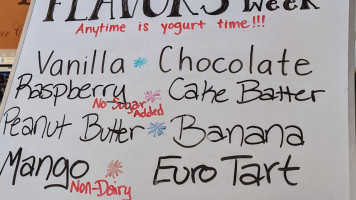 FLAVORS
Week
Anytime is yogurt time!!!
Vanilla * Chocolate
Raspberry Cake Batter
No Sugar Added
Peanut Butter * Banana
Mango Euro Tart
Non-Dairy